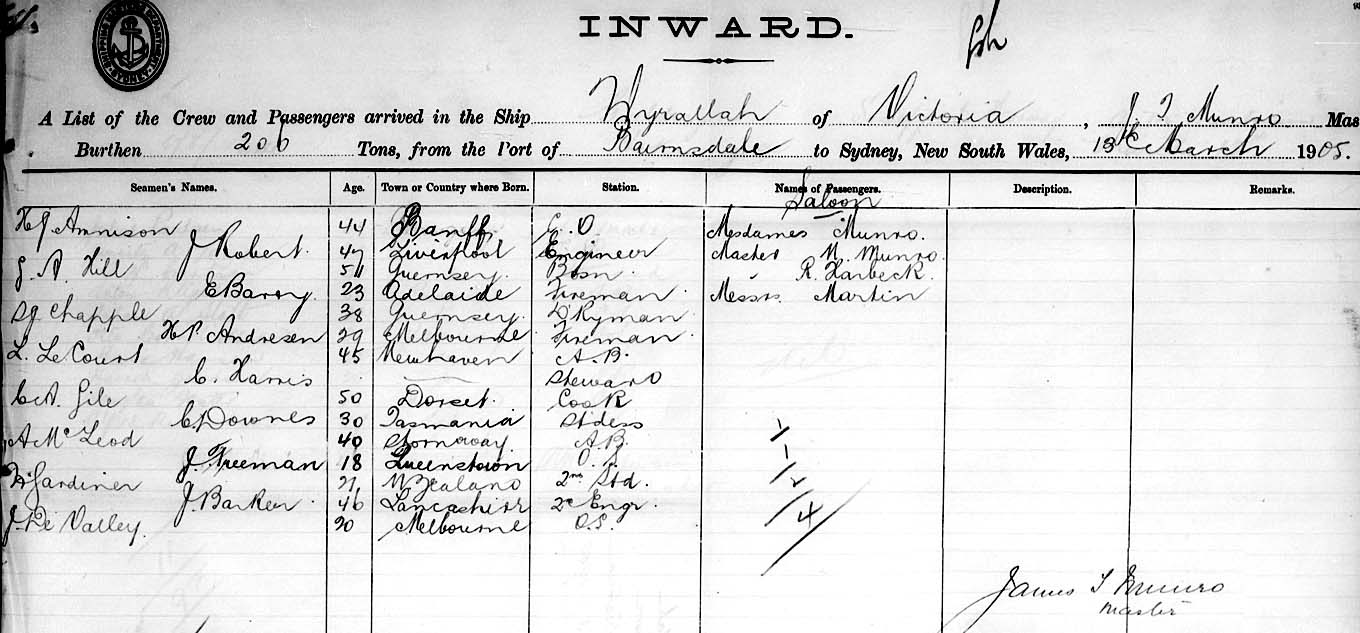 INWARD.
A List of the Crew and Passengers arrived in the Ship Wyrallah of Victoria, J. T. Munro Mas
Burthen 206 Tons, from the Port of Bairnsdale to Sydney, New South Wales, 13th March 1905.
Seamen's Names. Age. Town or Country where Born. Station. Names of Passengers. Description. Remarks.
Saloon
Annison 44 Banff C. O. Mesdames Munro.
J. Robert. 47 Liverpool Engineer Master M. Munro.
G. A. Hill 51 Guernsey. Bosn R. Harbeck.
E Barry. 23 Adelaide Fireman Messrs. Martin
Chapple 38 Guernsey. D'Kyman
H P. Andresen 29 Melbourne Fireman
L. Le Court 45 Newhaven A. B.
C. Harris Steward
C A. Gile 50 Dorset. Cook
C. Downes 30 Tasmania Stdess
A Mc Leod 40 Stornoway A B.
J. Freeman 18 Queenstown O. S.
Gardiner 21 N Zealand 2nd Std.
J. Barker 46 Lancashire 2e Engr.
J. De Valley. 20 Melbourne O. S.
1
1
2
4
James T Munro
Master